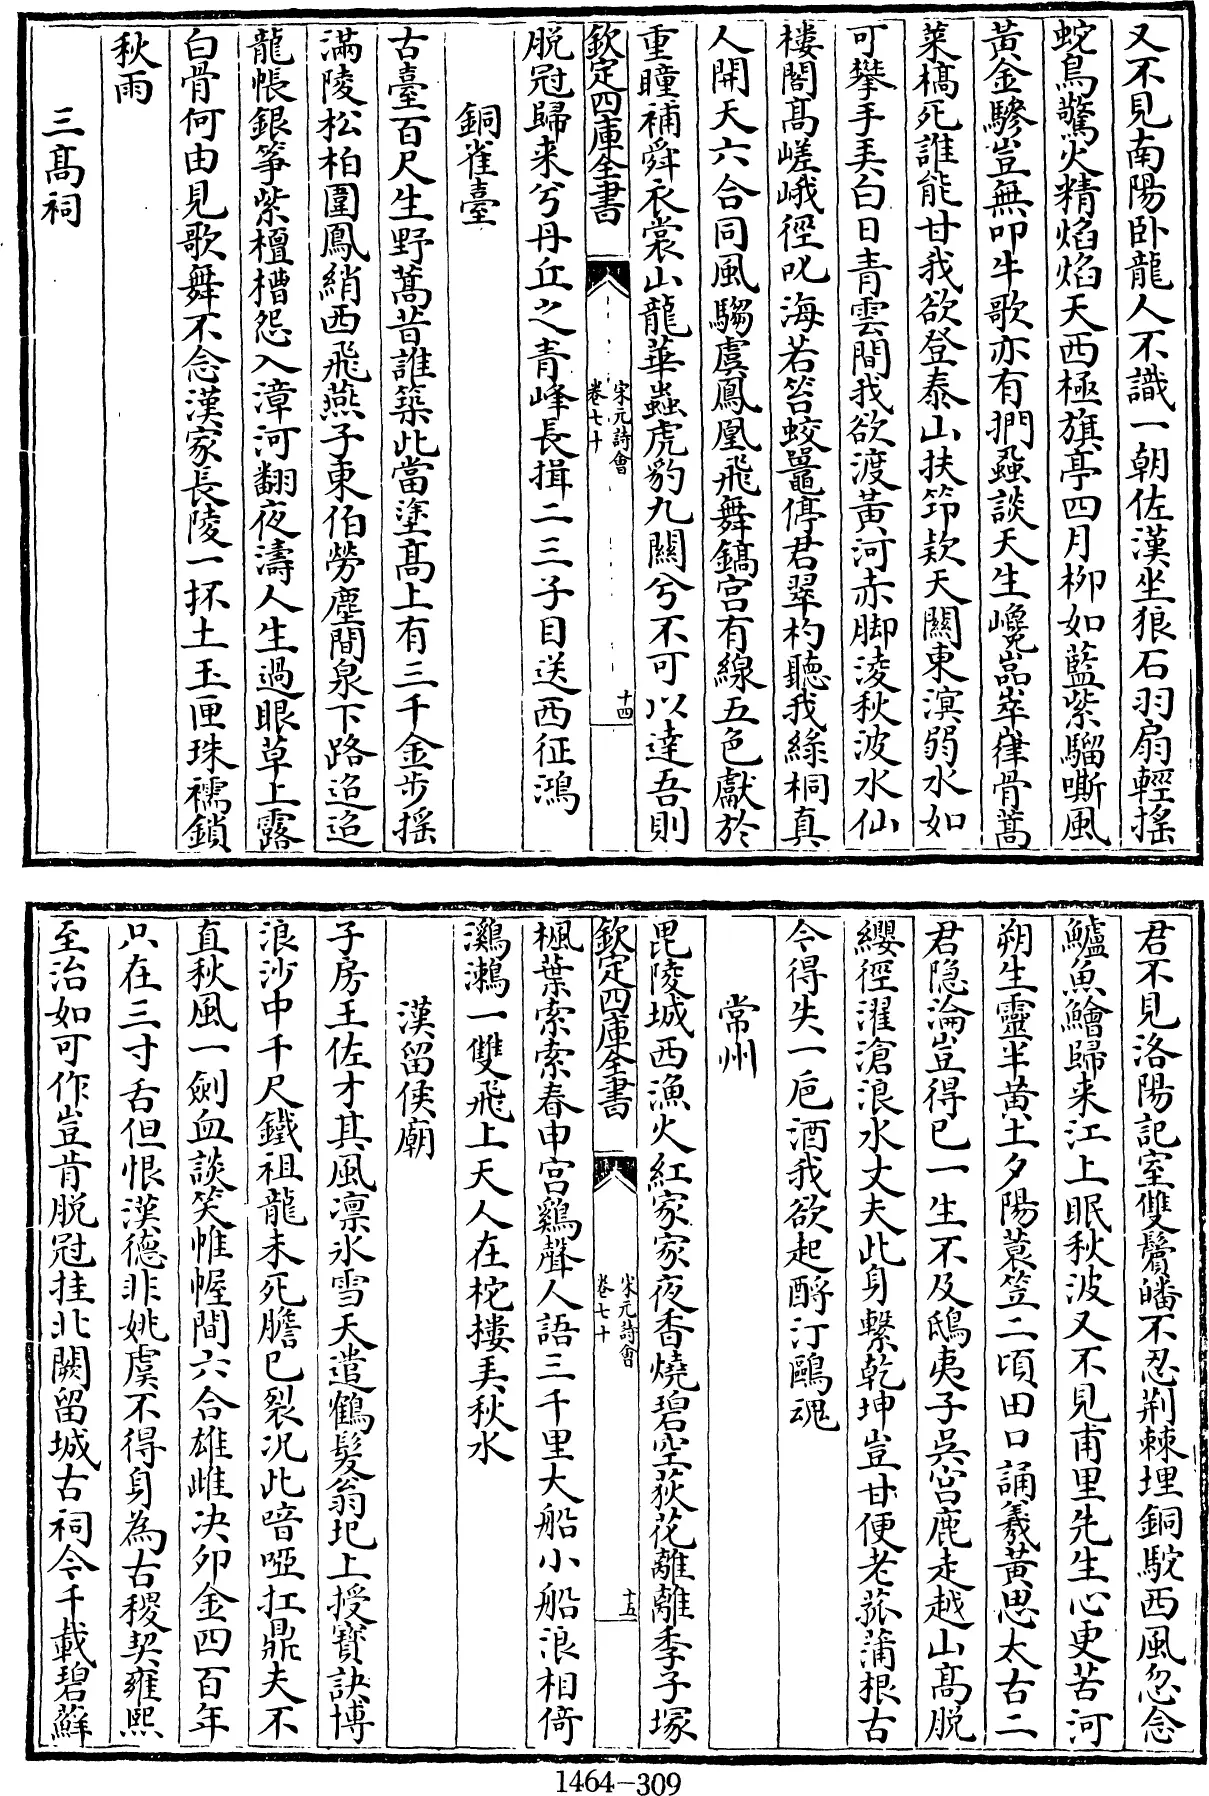 又不見南陽卧龍人不識一朝佐漢坐狼石羽扇輕搖
蛇鳥驚火精焰焰天西極旗亭四月柳如藍紫騮嘶風
黃金驂豈無叩牛歌亦有捫蝨談天生巉嵒崒嵂骨蒿
萊槁死誰能甘我欲登泰山扶笻欵天闗東溟弱水如
可攀手弄白日青雲間我欲渡黃河赤脚淩秋波水仙
樓閣髙嵯峨徑叱海若笞蛟鼉停君翠杓聽我綠桐真
人開天六合同風騶虞鳳凰飛舞鎬宫有線五色獻於
重瞳補舜衣裳山龍華蟲虎豹九關兮不可以達吾則
欽定四庫全書
宋元詩會
卷七十
十四
脱冠歸来兮丹丘之青峰長揖二三子目送西征鴻
銅雀臺
古臺百尺生野蒿昔誰築此當塗髙上有三千金步摇
滿陵松柏圍鳳綃西飛燕子東伯勞塵間泉下路迢迢
龍帳銀筝紫檀槽怨入漳河翻夜濤人生過眼草上露
白骨何由見歌舞不念漢家長陵一抔土玉匣珠襦鎖
秋雨
三髙祠
君不見洛陽記室雙鬢皤不忍荆棘埋銅駝西風忽念
鱸魚鱠歸来江上眠秋波又不見甫里先生心更苦河
朔生靈半黄土夕陽蓑笠二頃田口誦羲黄思太古二
君隐淪豈得已一生不及鴟夷子吳宫鹿走越山髙脱
纓徑濯滄浪水丈夫此身繫乾坤豈甘便老菰蒲根古
今得失一巵酒我欲起酹汀鷗魂
常州
毘陵城西漁火紅家家夜香燒碧空荻花離離季子塚
欽定四庫全書
宋元詩會
卷七十
十五
楓葉索索春申宫鷄聲人語三千里大船小船浪相倚
鸂鶒一雙飛上天人在柁樓弄秋水
漢留侯廟
子房王佐才其風凛氷雪天遣鶴髪翁圯上授寳訣博
浪沙中千尺鐵祖龍未死膽已裂况此喑啞扛鼎夫不
直秋風一劍血談笑帷幄間六合雄雌决卯金四百年
只在三寸舌但恨漢德非姚虞不得身為古稷契雍熙
至治如可作豈肯脱冠挂北闕留城古祠今千載碧蘚
1464-309